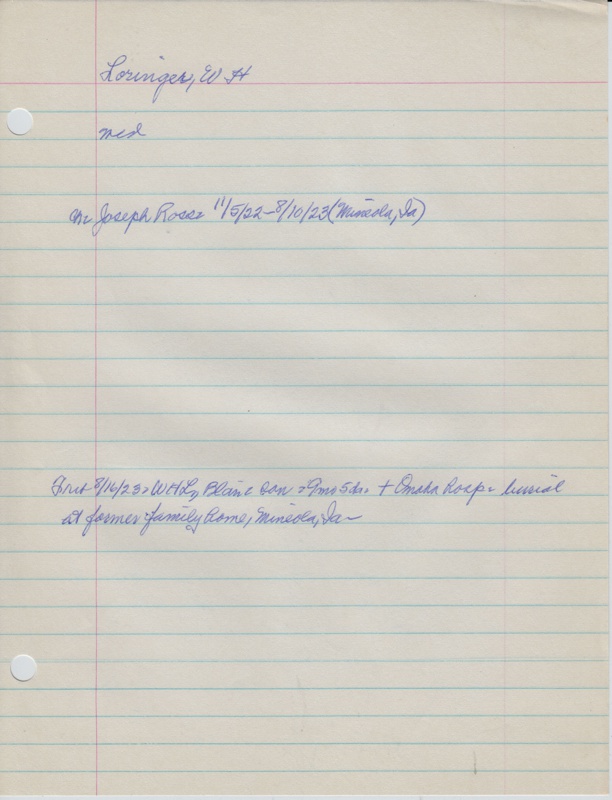 Loringer, W H
med
Joseph Ross= 11/5/22-8/10/23 (Mineola, Ia)
8/16/23= W H L, Blaine son = 9mo 5ds= + Omaha Hosp= burial
at former family home, Mineola, Ia-